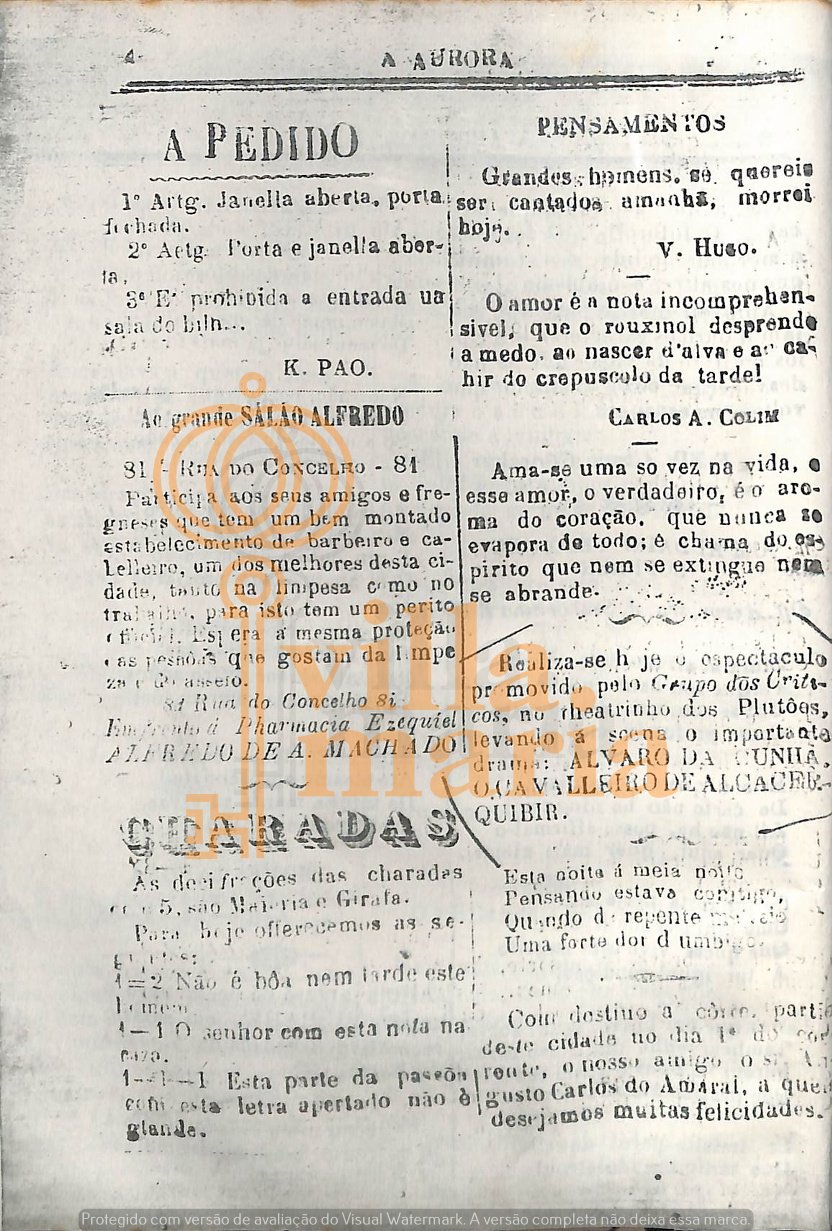 4
A AURORA
A PEDIDO
1º Artg. Janella aberta, porta
fechada.
2º Aetg. Porta e janella aber-
ta.
3º E' prohibida a entrada na
sala do
K. PAO.
Ao grande SALÃO ALFREDO
81 - RUA DO CONCELHO - 81
Participa aos seus amigos e fre-
gueses que tem um bem montado
estabelecimento de barbeiro e ca-
belleiro, um dos melhores desta ci-
dade, tanto na limpesa como no
trabalho, para isto tem um perito
official. Espera a mesma proteção
das pessôas que gostam da limpe
za e do asseio.
81 Rua do Concelho 81
Emfrente á Pharmacia Ezequiel
ALFREDO DE A. MACHADO
CHARADAS
As decifreções das charadas
5, são Materia e Girafa.
Para hoje offerecemos as se-
guintes:
1=2 Não é bôa nem tarde este
homem.
1—1 O senhor com esta nota na
caza.
1—1—1 Esta parte da passôa
com esta letra apertado não è
glande.
PENSAMENTOS
Grandes homens, se quereis
ser cantados amanhã, morrei
hoje.
V. HUGO.
O amor é a nota incomprehen-
sivel, que o rouxinol desprende
a medo, ao nascer d'alva e ao ca-
hir do crepusculo da tarde!
CARLOS A. COLIM
Ama-se uma so vez na vida, e
esse amor, o verdadeiro, é o aro-
ma do coração, que nunca se
evapora de todo; é chama do es-
pirito que nem se extingue nem
se abrande.
Realiza-se hoje o espectaculo
promovido pelo Grupo dos Criti-
cos, no theatrinho dos Plutões,
levando á scena o importante
drama: ALVARO DA CUNHA,
O CAVALLEIRO DE ALCACER-
QUIBIR.
Esta noite á meia noite
Pensando estava comtigo,
Quando de repente
Uma forte dor d umbigo.
Com destino a côrte, partio
deste cidade no dia 1º do cor
rente, o nosso amigo o sr. Au
gusto Carlos do Amaral, a quem
desejamos muitas felicidades.
villa
maria
Protegido com versão de avaliação do Visual Watermark. A versão completa não deixa essa marca.